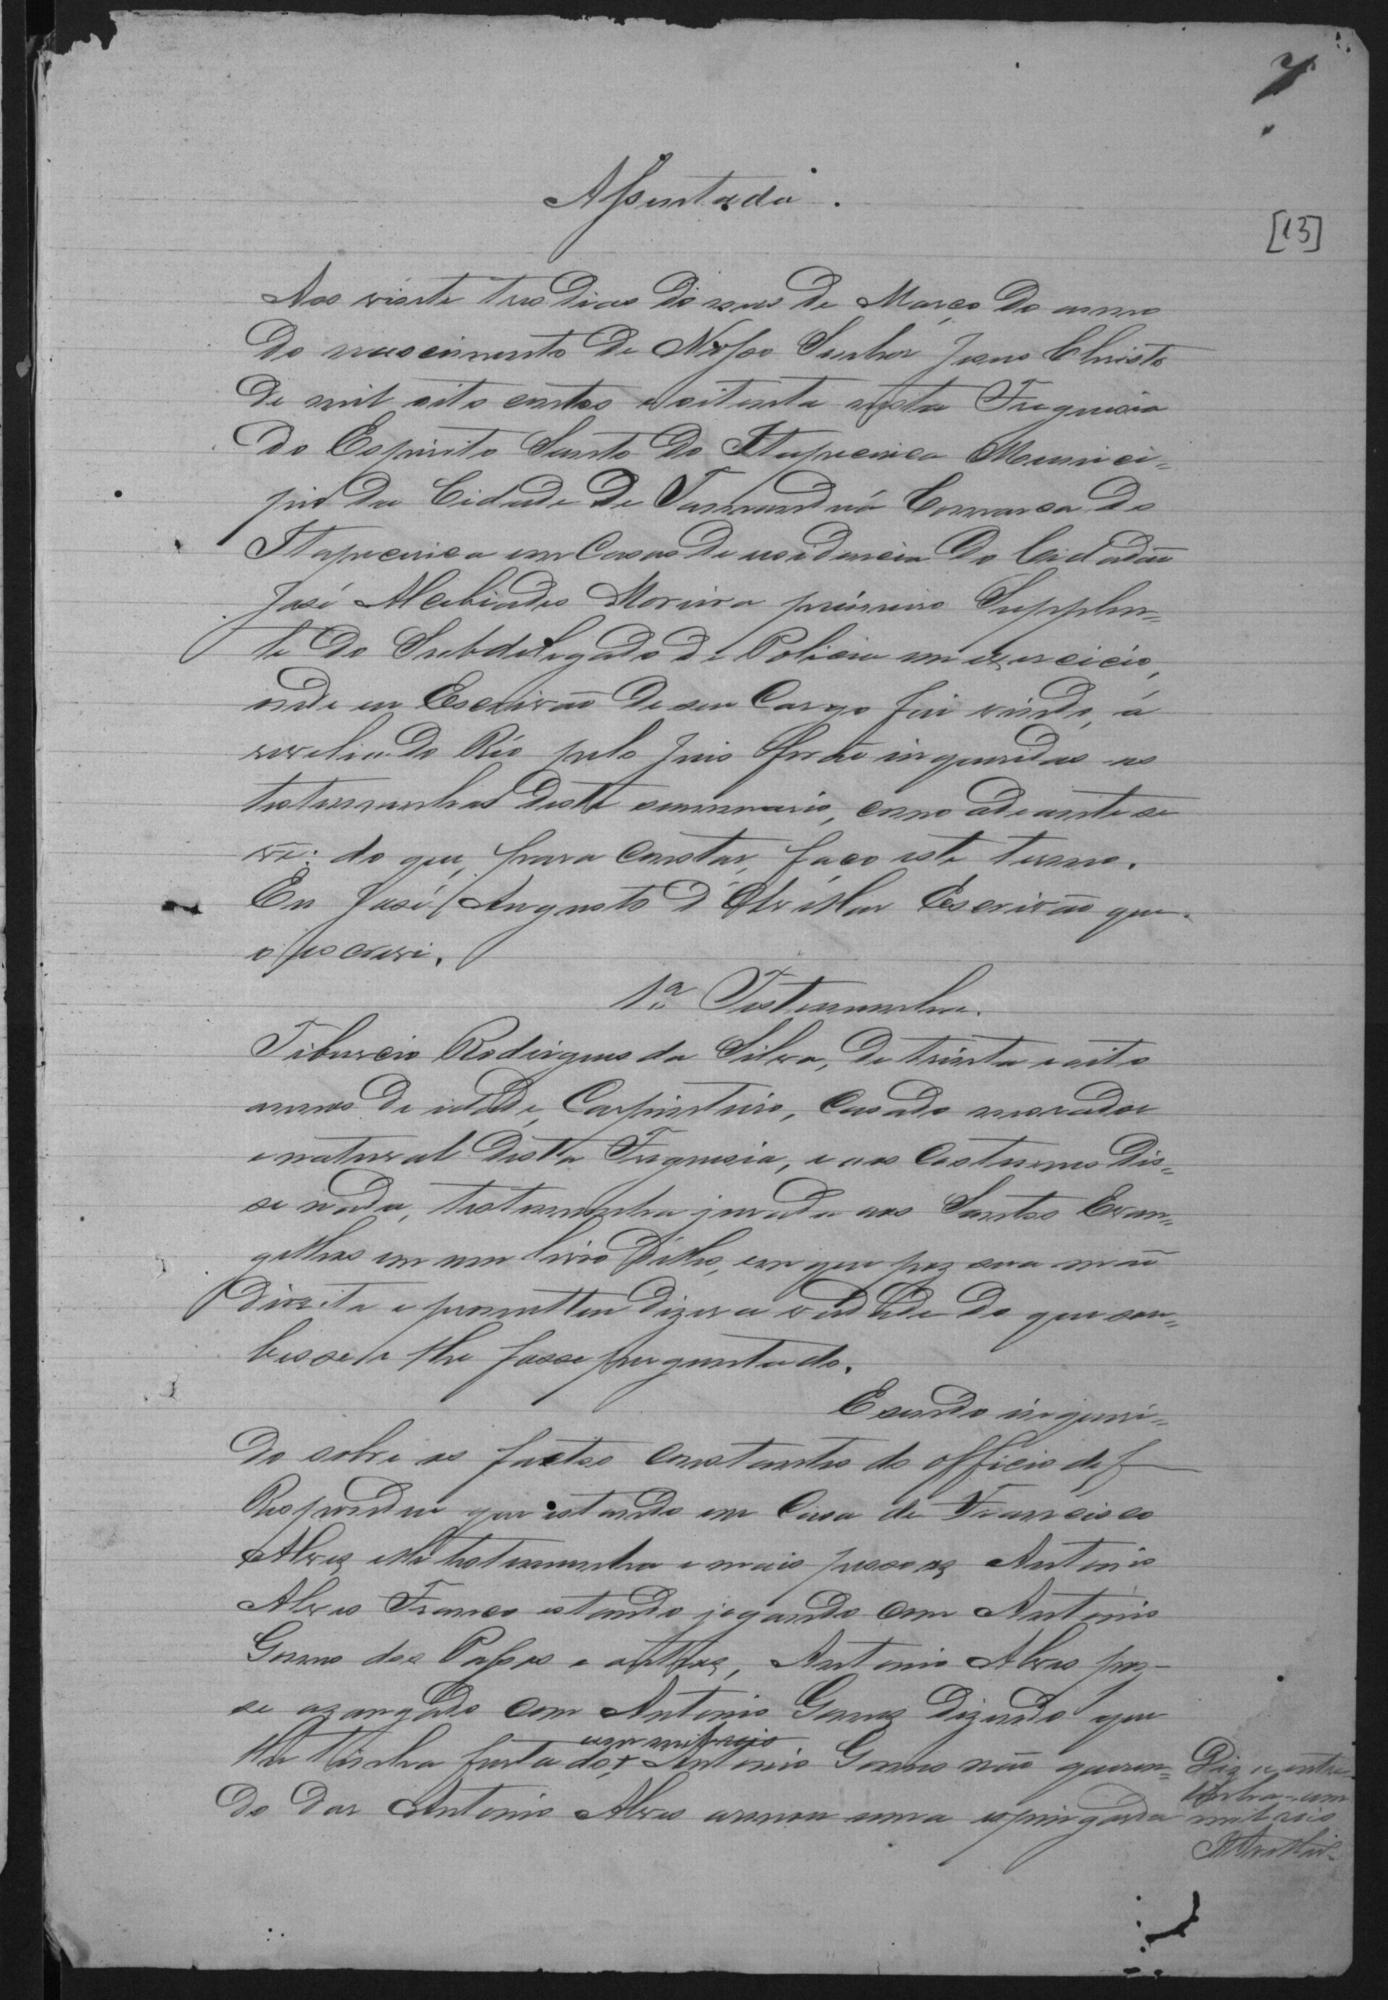 7
Assentada.
[13]
Aos vinte tres dias do mes de Março do anno
do nascimento de Nosso Senhor Jesus Christo
de mil oito centos e oitenta nesta Freguesia
do Espirito Santo do Itapecerica Munici=
pio da Cidade de Tamanduá Comarca do
Itapecerica em Casas de residencia do Cidadão
José Alcebiades Moreira primeiro Supplen=
te do Subdelegado de Policia em exercicio,
onde eu Escrivão de seu Cargo fui vindo, á
revelia do Réo pelo Juis forão inqueridas as
testemunhas deste summario, como adeante se
vê: do que, para constar, faço este termo.
Eu José Augusto d'Escrivão que
o escrevi.
1ª Testemunha.
Tiburcio Rodrigues da Silva, de trinta e oito
annos de idade, Carpinteiro, Casado morador
e natural desta Freguesia, e aos Costumes dis=
se nada, testemunha jurada aos Santos Evan=
gelhos em um livro d'elles, em que poz sua mão
direita e prometteu dizer a verdade do que sou=
besse e lhe fosse preguntado.
E sendo inqueri=
do sobre os factos constantes do officio de f
Respondeu que estando em Casa de Francisco
Alves elle testemunha e mais pessoas Antonio
Alves Franco estando jogando com Antonio
Gomes dos Passos e outros, Antonio Alves poz-
se azangado com Antonio Gomes dizendo que
um mil reis
lhe tinha furtado, + Antonio Gomes não queren=
do dar Antonio Alves armou uma espingarda
Diz a entre
linha - um
mil reis